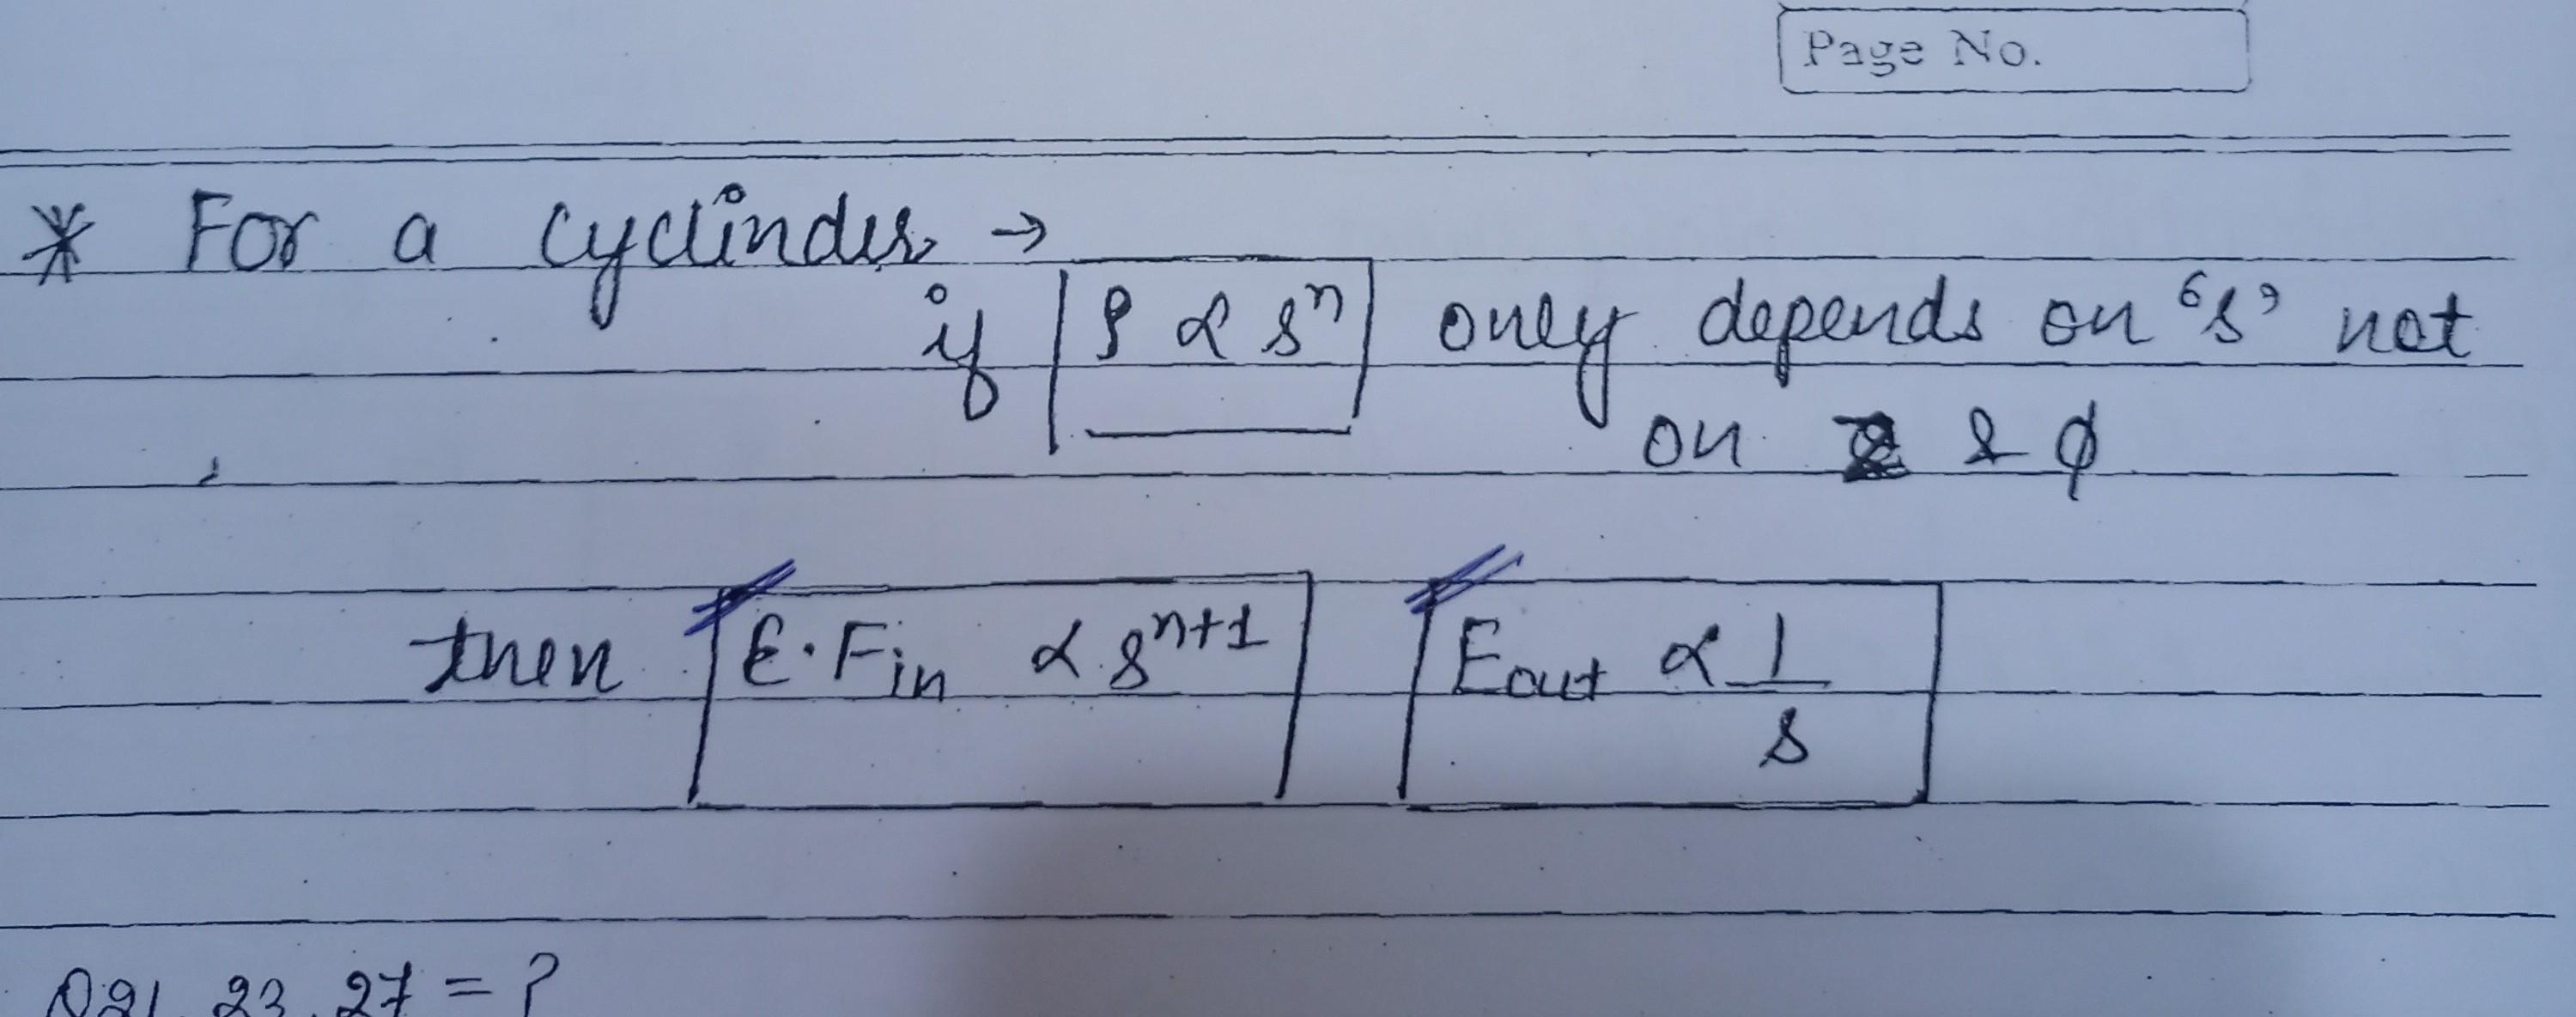 Page No.
* For a cyclinder →
if ρ ∝ s^n only depends on 's' not
on z & φ
then E.Fin ∝ s^n+1 Eout ∝ 1/s
Q21, 23, 27 = ?